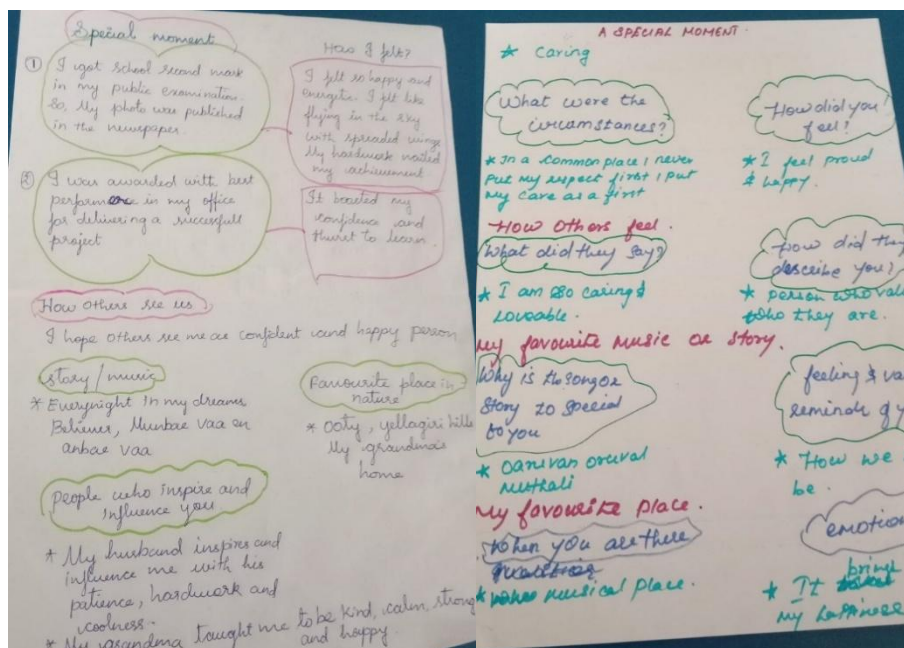 Special moment
① I got school second mark
in my public examination.
So, My photo was published
in the newspaper.
How I felt?
I felt so happy and
energetic. I felt like
flying in the sky
with spreaded wings
My hardwork
my achievement
② I was awarded with best
performance in my office
for delivering a successfull
project
It boosted my
confidence and
to learn.
How others see us
I hope others see me as confident and happy person
story/music
* Everynight in my dreams
Believer, Munbae vaa en
anbae vaa
Favourite place in
nature
* ooty, yellagiri hills
My grandma's
home
People who inspire and
influence you
* My husband inspires and
influence me with his
patience, hardwork and
coolness.
* My grandma taught me to be kind, calm, strong
and happy.
A SPECIAL MOMENT.
* Caring
What were the
circumstances?
* In a common place i never
put my respect first i put
my care as a first
How did you
feel?
* I feel proud
& happy.
How others feel.
What did they say?
* I am so caring &
Loveable.
How did they
describe you?
* person who val
who they are.
My favourite music or story.
Why is the song or
story so special
to you
* oruvan
muthali
feeling & va
remind of y
* How we
be.
My favourite place.
When you are there
* musical place.
emotion
* It bring
my happiness